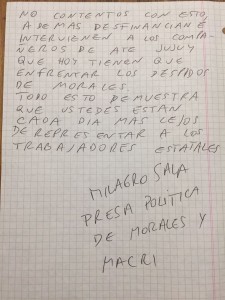 NO CONTENTOS CON ESTO,
ADEMAS DESFINANCIAN E
INTERVIENEN A LOS COMPA-
ÑEROS DE ATE JUJUY
QUE HOY TIENEN QUE
ENFRENTAR LOS DESPIDOS
DE MORALES
TODO ESTO DEMUESTRA
QUE USTEDES ESTAN
CADA DIA MAS LEJOS
DE REPRESENTAR A LOS
TRABAJADORES ESTATALES
MILAGRO SALA
PRESA POLÍTICA
DE MORALES Y
MACRI